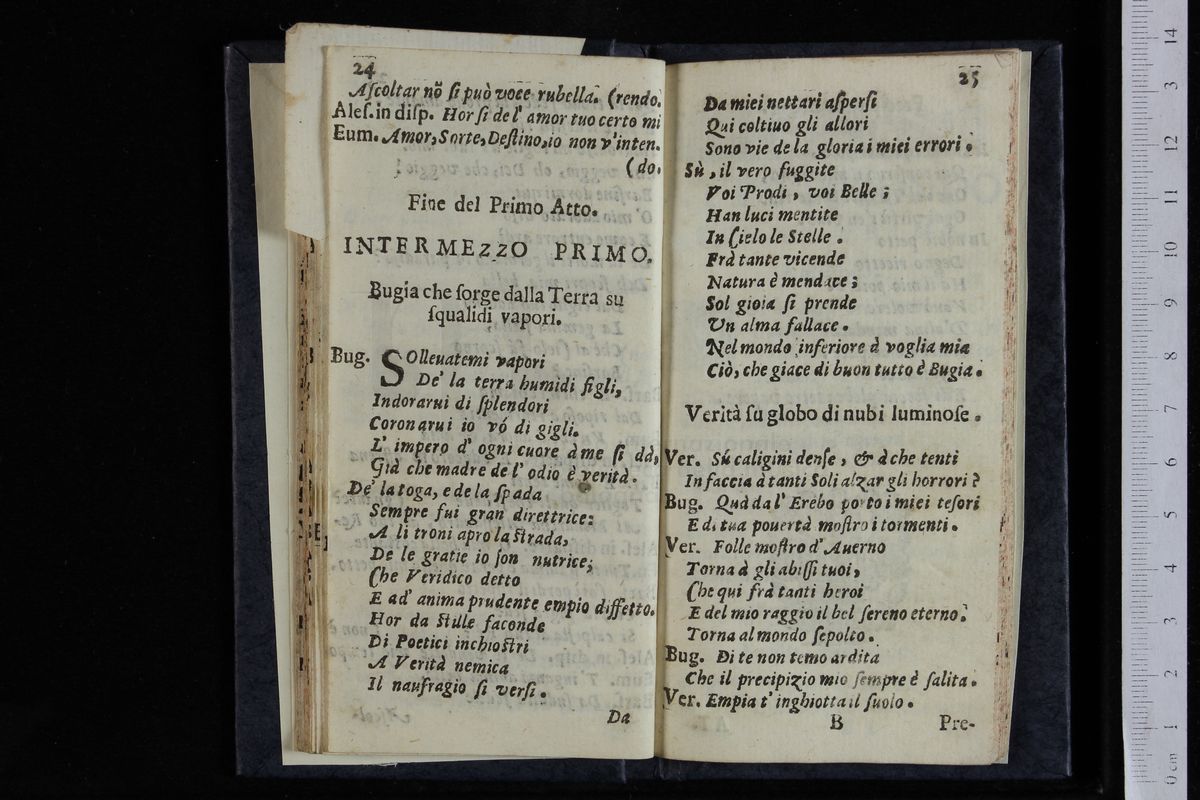 24
Aſcoltar nõ ſi può voce rubella. (rendo.
Aleſ. in diſp. Hor ſi de l' amor tuo certo mi
Eum. Amor, Sorte, Deſtino, io non v'inten.
(do.
Fine del Primo Atto.
INTERMEZZO PRIMO.
Bugia che ſorge dalla Terra su
ſqualidi vapori.
Bug. SOlleuatemi vapori
De' la terra humidi figli,
Indorarui di ſplendori
Coronarui io vó di gigli.
L' impero d' ogni cuore à me ſi dà,
Già che madre de l' odio è verità.
De' la toga, e de la ſpada
Sempre fui gran direttrice:
A li troni apro la ſtrada,
De le gratie io ſon nutrice;
Che Veridico detto
E ad' anima prudente empio diffetto.
Hor da ſtille faconde
Di Poetici inchioſtri
A Verità nemica
Il naufragio ſi verſi.
Da
25
Da miei nettari aſperſi
Qui coltiuo gli allori
Sono vie de la gloria i miei errori.
Sù, il vero fuggite
Voi Prodi, voi Belle;
Han luci mentite
In Cielo le Stelle.
Frà tante vicende
Natura è mendace;
Sol gioia ſi prende
Vn alma fallace.
Nel mondo inferiore à voglia mia
Ciò, che giace di buon tutto è Bugia.
Verità ſu globo di nubi luminoſe.
Ver. Sú caligini denſe, & à che tenti
In faccia à tanti Soli alzar gli horrori?
Bug. Quà da l' Erebo porto i miei teſori
E di tua pouertà moſtro i tormenti.
Ver. Folle moſtro d' Auerno
Torna à gli abiſſi tuoi,
Che qui frà tanti heroi
E del mio raggio il bel ſereno eterno.
Torna al mondo ſepolto.
Bug. Di te non temo ardita
Che il precipizio mio ſempre è ſalita.
Ver. Empia t' inghiotta il ſuolo.
B Pre-
0 cm 1 2 3 4 5 6 7 8 9 10 11 12 3 14